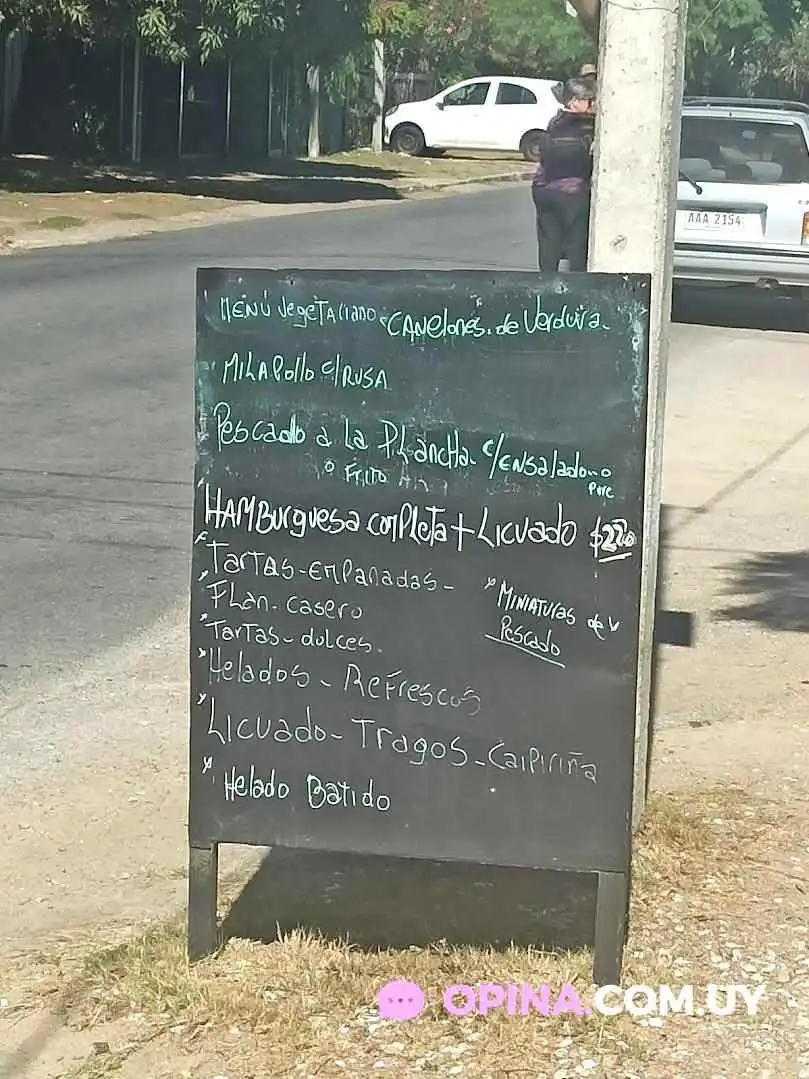 MENÚ VegetaRiano CANelones. de Verdura.
MILA Pollo c/RUSA
Pescado a La PLancha. c/ensalada o
o Frito Pure
HAMBurguesa comPLeta + Licuado $220
Tartas - emPanadas -
* MINIATURAS de
FLan. casero
Pescado
Tartas - dulces.
Helados - Refrescos
Licuado - Tragos - Caipiriña
Helado Batido
AAA 2154
OPINA.COM.UY